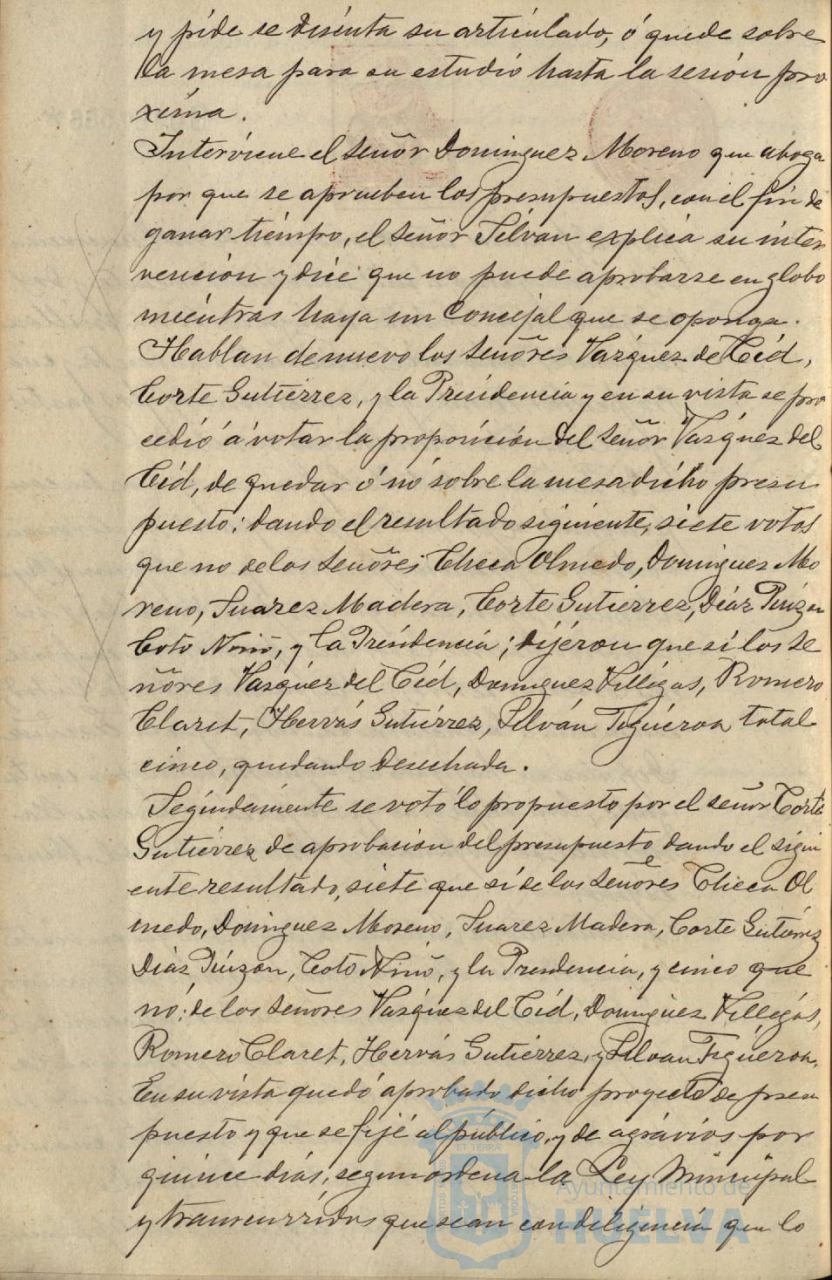 y pide se discuta su artículado, ó quede sobre
la mesa para su estudio hasta la sesión pro
xima.
Interviene el señor Dominguez Moreno que aboga
por que se aprueben los presupuestos, con el fin de
ganar tiempo, el señor Silvan explica su inter
vención y dice que no puede aprobarse en globo
mientras haya un Concejal que se oponga.
Hablan de nuevo los señores Vazquez de Cid,
Corte Gutierrez, y la Presidencia y en su vista se pro
cedió á votar la proposición del señor Vasquez del
Cid, de quedar ó nó sobre la mesa dicho presu
puesto; dando el resultado siguiente, siete votos
que no de los señores Checa Olmedo, Dominguez Mo
reno, Suarez Madera, Corte Gutierrez, Diaz Pinzon
Coto Niño, y la Presidencia; dijeron que sí los se
ñores Vasquez del Cid, Dominguez Villegas, Romero
Claret, Hervás Gutiérrez, Silván Figueroa total
cinco, quedando desechada.
Segundamente se votó lo propuesto por el señor Corte
Gutiérrez de aprobación del presupuesto dando el sigui
ente resultado, siete que sí de los señores Checa Ol
medo, Dominguez Moreno, Suarez Madera, Corte Gutierrez
Diaz Pinzon, Coto Niño, y la Presidencia, y cinco que
nó; de los señores Vasquez del Cid, Dominguez Villegas,
Romero Claret, Hervás Gutiérrez, y Silvan Figueroa.
En su vista quedó aprobado dicho proyecto de presu
puesto y que se fijé al público, y de agrávios por
quince dias, segun ordena la Ley Municipal
y transcurridos que sean con diligencia que lo
Ayuntamiento de
HUELVA